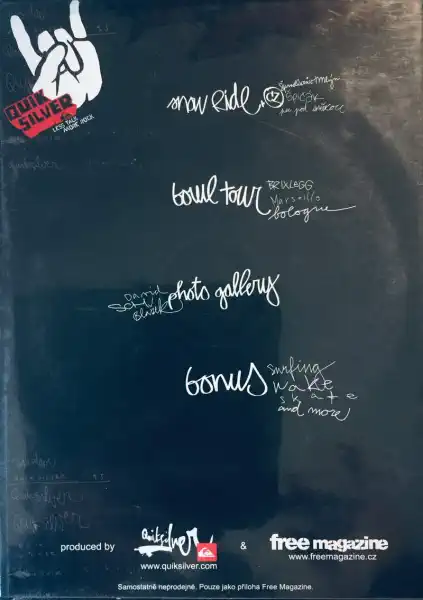 QUIK
SILVER
LESS TALK
MORE ROCK
snow ride
CZ
bowl tour
BRIXLEGG
Marseille
bologne
photo gallery
David
bonus
surfing
wake
skate
and more
produced by
Quiksilver
www.quiksilver.com
&
free magazine
www.freemagazine.cz
Samostatně neprodejné. Pouze jako příloha Free Magazine.